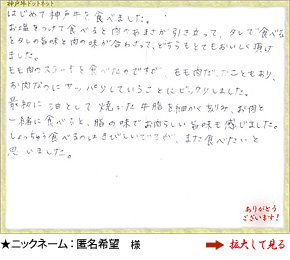 神戸牛ドットネット
はじめて神戸牛を食べました。
お塩をつけて食べると肉のあまさが引き立って、タレで食べる
とタレの旨味と肉の味が合わさって、どちらもとてもおいしく頂け
ました。
モモ肉のステーキを食べたのですが、モモ肉だったこともあり、
お肉なのにサッパリしていることにビックリしました。
最初に油として焼いた牛脂を細かく刻み、お肉と
一緒に食べると、脂の味でお肉らしい旨味も感じました。
しょっちゅう食べるのはきびしいですが、また食べたいと
思いました。
ありがとう
ございます!
★ニックネーム：匿名希望 様
拡大して見る